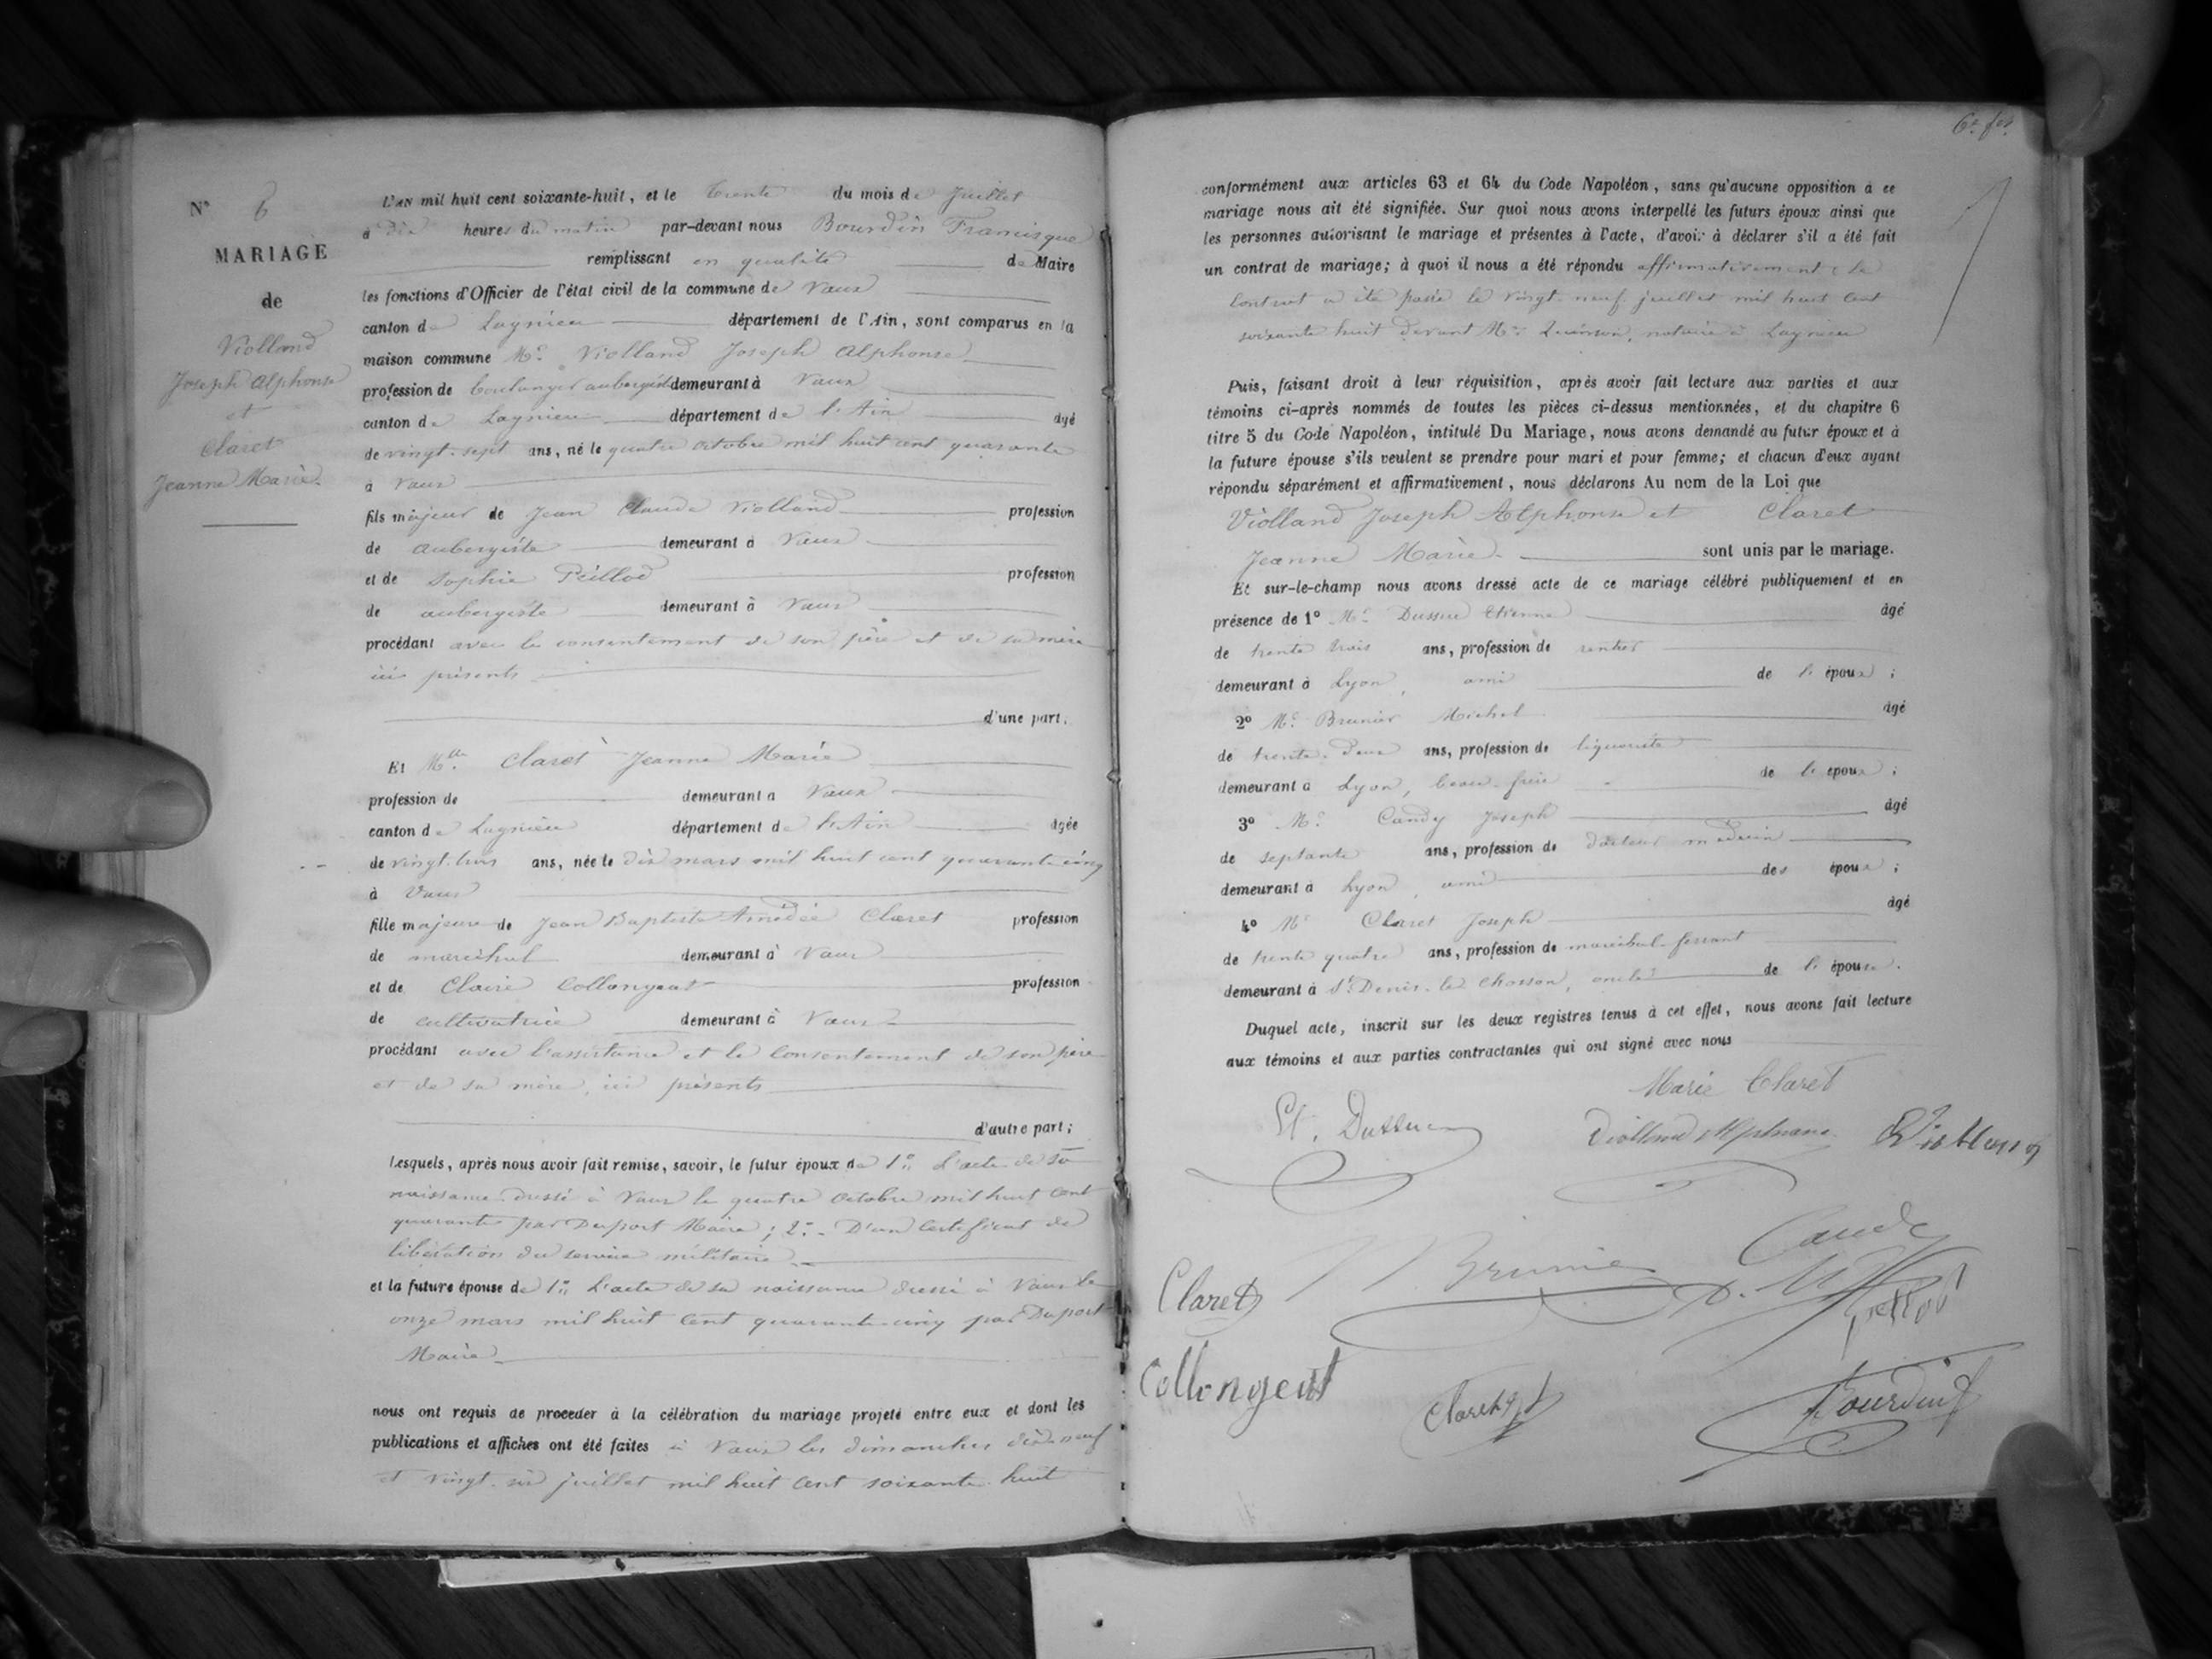 N° 6
MARIAGE
de
Violland
Joseph Alphonse
et
Claret
Jeanne Marie.
L'AN mil huit cent soixante-huit, et le trente du mois de juillet
à dix heures du matin par-devant nous Bourdin Francisque
remplissant en qualité de Maire
les fonctions d'Officier de l'état civil de la commune de Vaux
canton de Lagnieu département de l'Ain, sont comparus en la
maison commune Mr. Violland Joseph Alphonse
profession de boulanger aubergiste demeurant à Vaux
canton de Lagnieu département de l'Ain âgé
de vingt-sept ans, né le quatre octobre mil huit cent quarante
à Vaux
fils majeur de Jean Claude Violland profession
de aubergiste demeurant à Vaux
et de Sophie Peillod profession
de aubergiste demeurant à Vaux
procédant avec le consentement de son père et de sa mère
ici présents
d'une part;
Et Mlle. Claret Jeanne Marie
profession de demeurant à Vaux
canton de Lagnieu département de l'Ain âgée
de vingt-trois ans, née le dix mars mil huit cent quarante-cinq
à Vaux
fille majeure de Jean Baptiste Amédée Claret profession
de maréchal demeurant à Vaux
et de Claire Collongeat profession
de cultivatrice demeurant à Vaux
procédant avec l'assistance et le consentement de son père
et de sa mère, ici présents
d'autre part;
Lesquels, après nous avoir fait remise, savoir, le futur époux de 1° L'acte de sa
naissance dressé à Vaux le quatre octobre mil huit cent
quarante par Duport Maire; 2° D'un certificat de
libération du service militaire
et la future épouse de 1° L'acte de sa naissance dressé à Vaux le
onze mars mil huit cent quarante-cinq par Duport
Maire
nous ont requis de procéder à la célébration du mariage projeté entre eux et dont les
publications et affiches ont été faites à Vaux les dimanches dix-neuf
et vingt-six juillet mil huit cent soixante-huit
conformément aux articles 63 et 64 du Code Napoléon, sans qu'aucune opposition à ce
mariage nous ait été signifiée. Sur quoi nous avons interpellé les futurs époux ainsi que
les personnes autorisant le mariage et présentes à l'acte, d'avoir à déclarer s'il a été fait
un contrat de mariage; à quoi il nous a été répondu affirmativement; le
contrat a été passé le vingt-neuf juillet mil huit cent
soixante huit devant Me. Quinson, notaire à Lagnieu
Puis, faisant droit à leur réquisition, après avoir fait lecture aux parties et aux
témoins ci-après nommés de toutes les pièces ci-dessus mentionnées, et du chapitre 6
titre 5 du Code Napoléon, intitulé Du Mariage, nous avons demandé au futur époux et à
la future épouse s'ils veulent se prendre pour mari et pour femme; et chacun d'eux ayant
répondu séparément et affirmativement, nous déclarons Au nom de la Loi que
Violland Joseph Alphonse et Claret
Jeanne Marie. sont unis par le mariage.
Et sur-le-champ nous avons dressé acte de ce mariage célébré publiquement et en
présence de 1° Mr. Etienne âgé
de trente trois ans, profession de rentier
demeurant à Lyon, ami de l'époux;
2° Mr. Brunier Michel âgé
de trente-deux ans, profession de liquoriste
demeurant à Lyon, beau-frère de l'époux;
3° Mr. Candy Joseph âgé
de septante ans, profession de docteur médecin
demeurant à Lyon, ami des époux;
4° Mr Claret Joseph âgé
de trente quatre ans, profession de maréchal-ferrant
demeurant à St. Denis-le Chosson, oncle de l'épouse.
Duquel acte, inscrit sur les deux registres tenus à cet effet, nous avons fait lecture
aux témoins et aux parties contractantes qui ont signé avec nous
Marie Claret
Violland Alphonse
Brunier
Candy
Claret
Collongeat
Bourdin